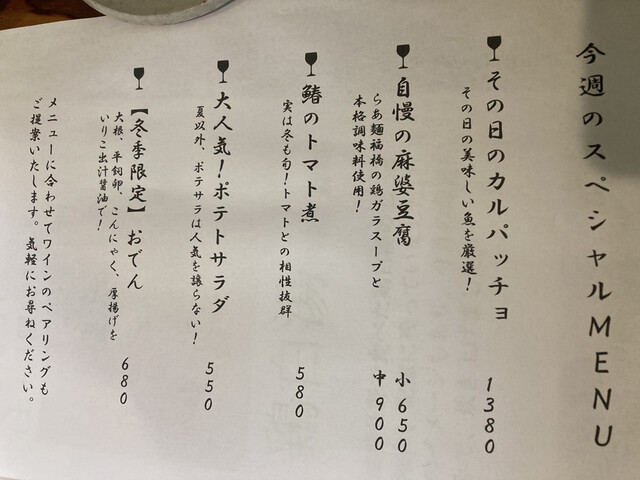 今週のスペシャルMENU
その日のカルパッチョ 1380
その日の美味しい魚を厳選!
自慢の麻婆豆腐 小 650
中 900
らあ麺福橋の鶏ガラスープと
本格調味料使用!
鰆のトマト煮 580
実は冬も旬!トマトとの相性抜群
大人気!ポテトサラダ 550
夏以外、ポテサラは人気を譲らない!
【冬季限定】おでん 680
大根、平飼卵、こんにゃく、厚揚げを
いりこ出汁醤油で!
メニューに合わせてワインのペアリングも
ご提案いたします。気軽にお尋ねください。